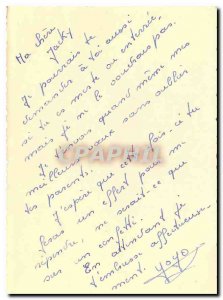 Ma chère
Jacky
Je pourrais te
demander à toi aussi
si tu es morte ou enterrée,
mais je ne le souhaite pas.
Je t'envoie quand même mes
meilleurs vœux sans oublier
tes parents.
J'espère que cette fois-ci tu
feras un effort pour me
répondre, ne serait-ce que
un confetti.
En attendant je
t'embrasse affectueuse-
ment.
Yoyo